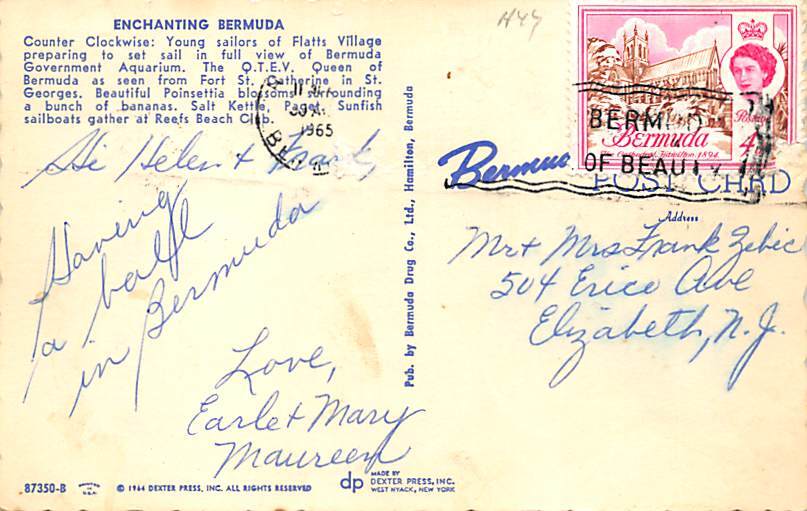 ENCHANTING BERMUDA
Counter Clockwise: Young sailors of Flatts Village
preparing to set sail in full view of Bermuda
Government Aquarium. The Q.T.E.V. Queen of
Bermuda as seen from Fort St. Catherine in St.
Georges. Beautiful Poinsettia blossoms surrounding
a bunch of bananas. Salt Kettle, Paget. Sunfish
sailboats gather at Reefs Beach Club.
1965
Hi Helen + Frank,
Having
a ball
in Bermuda
Love,
Earle + Mary
Maureen
87350-B
© 1964 DEXTER PRESS, INC. ALL RIGHTS RESERVED
dp
MADE BY
DEXTER PRESS, INC.
WEST NYACK, NEW YORK
Pub. by Bermuda Drug Co., Ltd., Hamilton, Bermuda
Bermuda
The Cathedral, Hamilton, 1894
4
BERMUD
OF BEAUTY
POST CARD
Address
Mr + Mrs Frank Zebic
504 Erico Ave
Elizabeth, N.J.